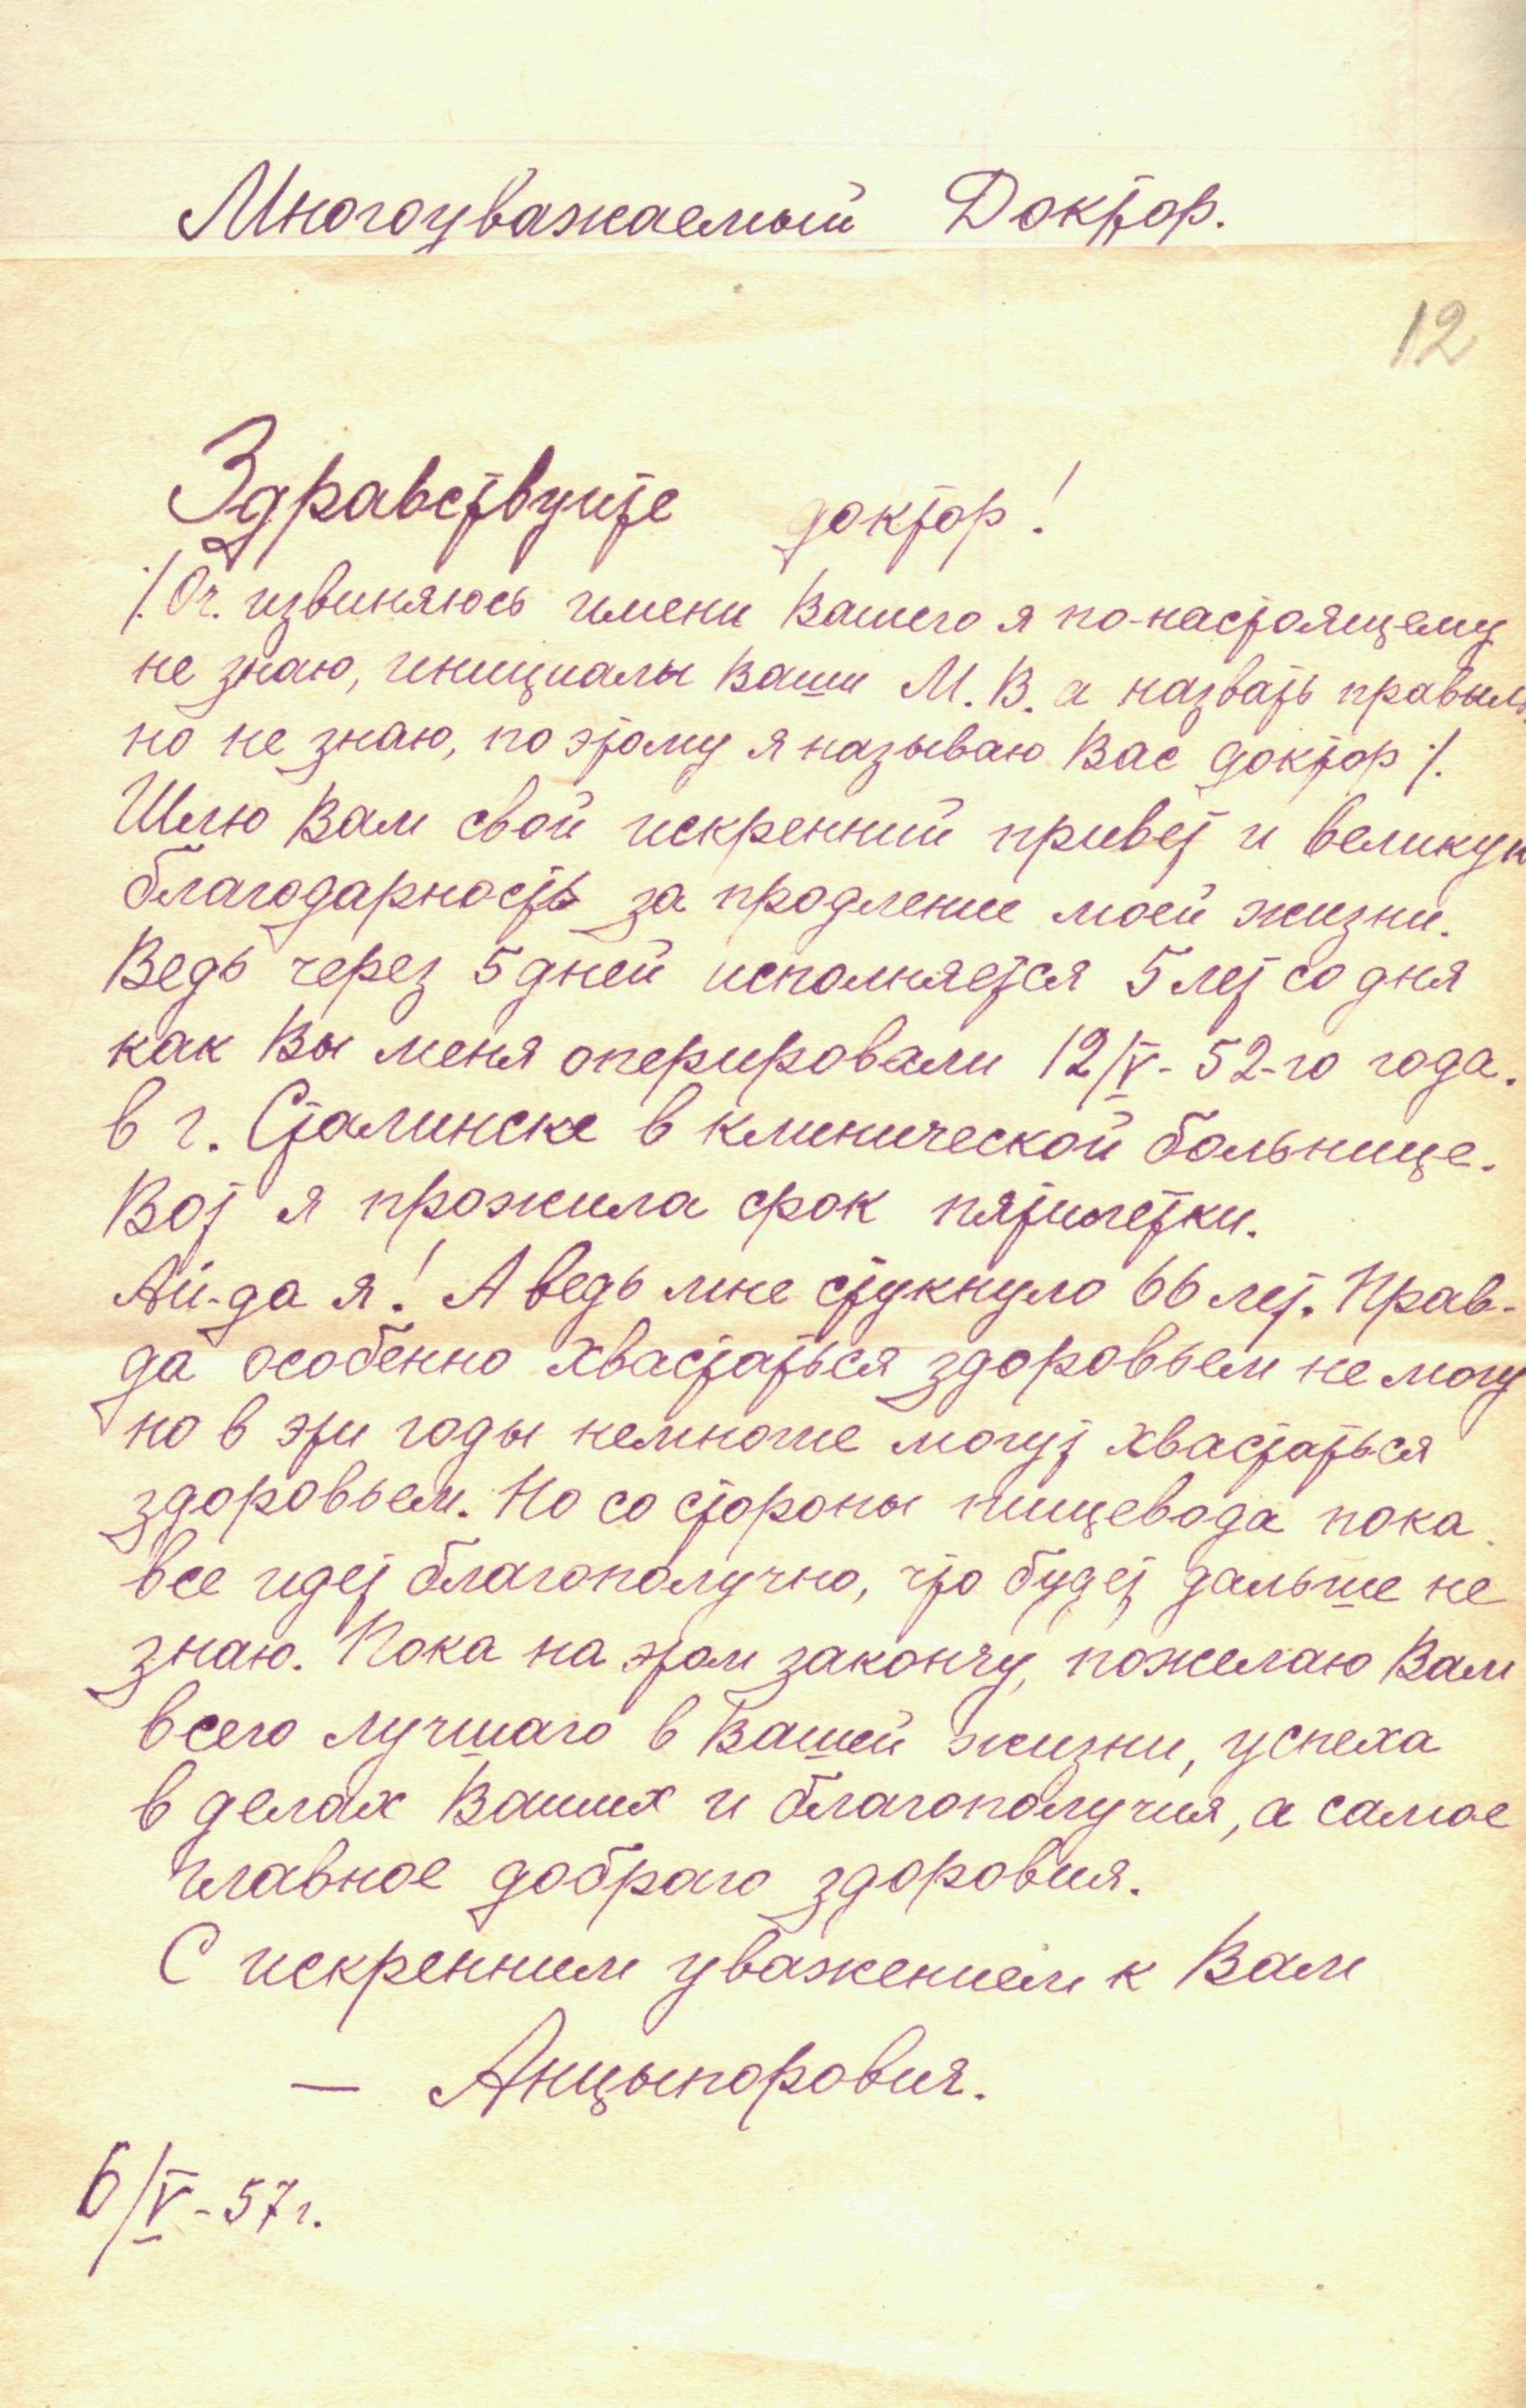 Многоуважаемый Доктор.
12
Здравствуйте доктор!
/. Оч. извиняюсь имени Вашего я по-настоящему
не знаю, инициалы Ваши М. В. а назвать правиль
но не знаю, по этому я называю Вас доктор /.
Шлю Вам свой искренний привет и великую
благодарность за продление моей жизни.
Ведь через 5 дней исполняется 5 лет со дня
как Вы меня оперировали 12/V - 52-го года.
в г. Сталинске в клинической больнице.
Вот я прожила срок пятилетки.
Ай-да я! А ведь мне стукнуло 66 лет. Прав-
да особенно хвастаться здоровьем не могу
но в эти годы немногие могут хвастаться
здоровьем. Но со стороны пищевода пока
все идет благополучно, что будет дальше не
знаю. Пока на этом закончу, пожелаю Вам
всего лучшаго в Вашей жизни, успеха
в делах Ваших и благополучия, а самое
главное добраго здоровия.
С искренним уважением к Вам
— Анцыпоровия.
6/V - 57 г.